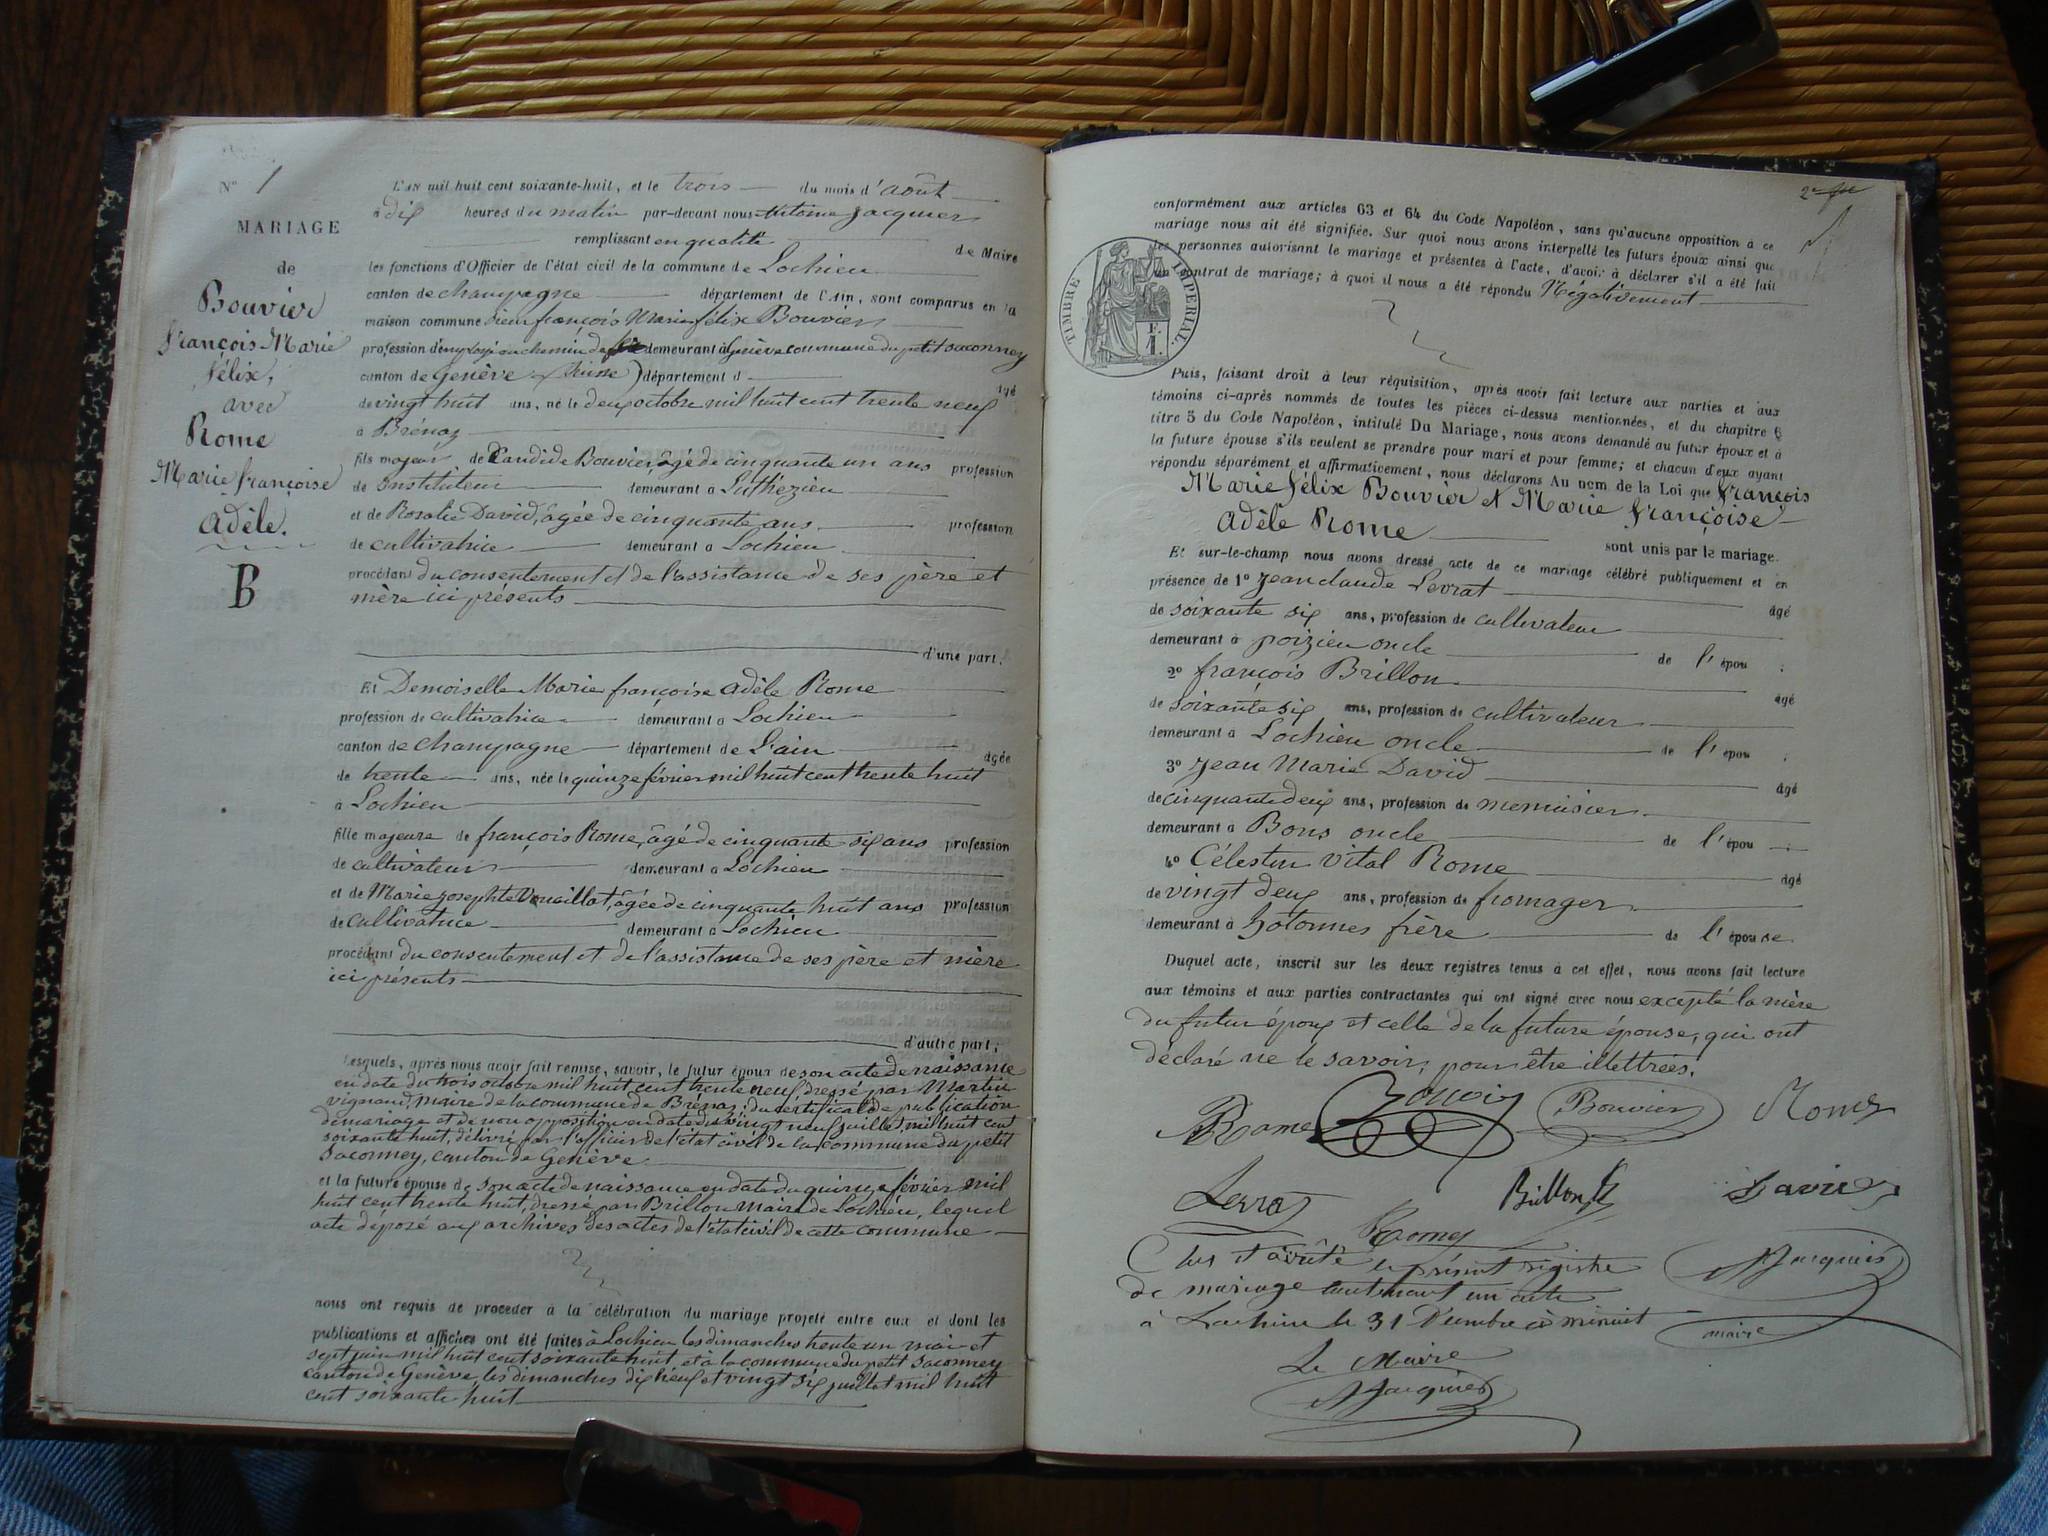 N° 1
MARIAGE
de
Bouvier
françois Marie
félix,
avec
Rome
Marie françoise
Adèle.
B
L'an mil huit cent soixante-huit, et le trois du mois d'août
à dix heures du matin par-devant nous Antoine Jacquier
remplissant en qualité de Maire
les fonctions d'Officier de l'état civil de la commune de Lochieu
canton de champagne département de l'Ain, sont comparus en la
maison commune sieur françois Marie félix Bouvier
profession d'employé au chemin de fer demeurant à Genève commune du petit saconney
canton de Genève (Suisse) département d
âgé
de vingt huit ans, né le deux octobre mil huit cent trente neuf
à Brénaz
fils majeur de Candide Bouvier, âgé de cinquante un ans profession
de instituteur demeurant à Luthézieu
et de Rosalie David, âgée de cinquante ans profession
de cultivatrice demeurant à Lochieu
procédant du consentement et de l'assistance de ses père et
mère ici présents
d'une part;
Et Demoiselle Marie françoise Adèle Rome
profession de cultivatrice demeurant à Lochieu
canton de champagne département de L'ain
âgée
de trente ans, née le quinze février mil huit cent trente huit
à Lochieu
fille majeure de françois Rome, âgé de cinquante six ans profession
de cultivateur demeurant à Lochieu
et de Marie josephte Vouillot, âgée de cinquante huit ans profession
de cultivatrice demeurant à Lochieu
procédant du consentement et de l'assistance de ses père et mère
ici présents
d'autre part;
Lesquels, après nous avoir fait remise, savoir, le futur époux de son acte de naissance
en date du trois octobre mil huit cent trente neuf, dressé par Martin
vignand, maire de la commune de Brénaz; du certificat de publication
de mariage et de non opposition en date du vingt neuf juillet mil huit cent
soixante huit, délivré par l'officier de l'état civil de la commune du petit
saconney, canton de Genève
et la future épouse de son acte de naissance en date du quinze février mil
huit cent trente huit, dressé par Brillon Maire de Lochieu, lequel
acte déposé aux archives des actes de l'état civil de cette commune
nous ont requis de procéder à la célébration du mariage projeté entre eux et dont les
publications et affiches ont été faites à Lochieu les dimanches trente un mai et
sept juin mil huit cent soixante huit, et à la commune du petit saconney
canton de Genève, les dimanches dix neuf et vingt six juillet mil huit
cent soixante-huit
2e
conformément aux articles 63 et 64 du Code Napoléon, sans qu'aucune opposition à ce
mariage nous ait été signifiée. Sur quoi nous avons interpellé les futurs époux ainsi que
les personnes autorisant le mariage et présentes à l'acte, d'avoir à déclarer s'il a été fait
un contrat de mariage; à quoi il nous a été répondu Négativement
TIMBRE IMPERIAL.
Puis, faisant droit à leur réquisition, après avoir fait lecture aux parties et aux
témoins ci-après nommés de toutes les pièces ci-dessus mentionnées, et du chapitre 6
titre 5 du Code Napoléon, intitulé Du Mariage, nous avons demandé au futur époux et à
la future épouse s'ils veulent se prendre pour mari et pour femme; et chacun d'eux ayant
répondu séparément et affirmativement, nous déclarons Au nom de la Loi que françois
Marie félix Bouvier et Marie françoise
Adèle Rome
sont unis par le mariage.
Et sur-le-champ nous avons dressé acte de ce mariage célébré publiquement et en
présence de 1° Jean claude Levrat
âgé
de soixante six ans, profession de cultivateur
demeurant à poizieu oncle de l'épou
2° françois Brillon
âgé
de soixante six ans, profession de cultivateur
demeurant à Lochieu oncle de l'épou
3° Jean Marie David
âgé
de cinquante deux ans, profession de menuisier
demeurant à Bons oncle de l'épou
4° Célestin vital Rome
âgé
de vingt deux ans, profession de fromager
demeurant à hotonnes frère de l'épouse
Duquel acte, inscrit sur les deux registres tenus à cet effet, nous avons fait lecture
aux témoins et aux parties contractantes qui ont signé avec nous excepté la mère
du futur époux et celle de la future épouse, qui ont
déclaré ne le savoir, pour être illettrées.
Rome Bouvier Bouvier Rome
Levrat Brillon David
Rome
Clos et arrêté le présent registre
de mariage contenant un acte
à Lochieu le 31 Décembre à minuit
Jacquier
maire
Le Maire
Jacquier